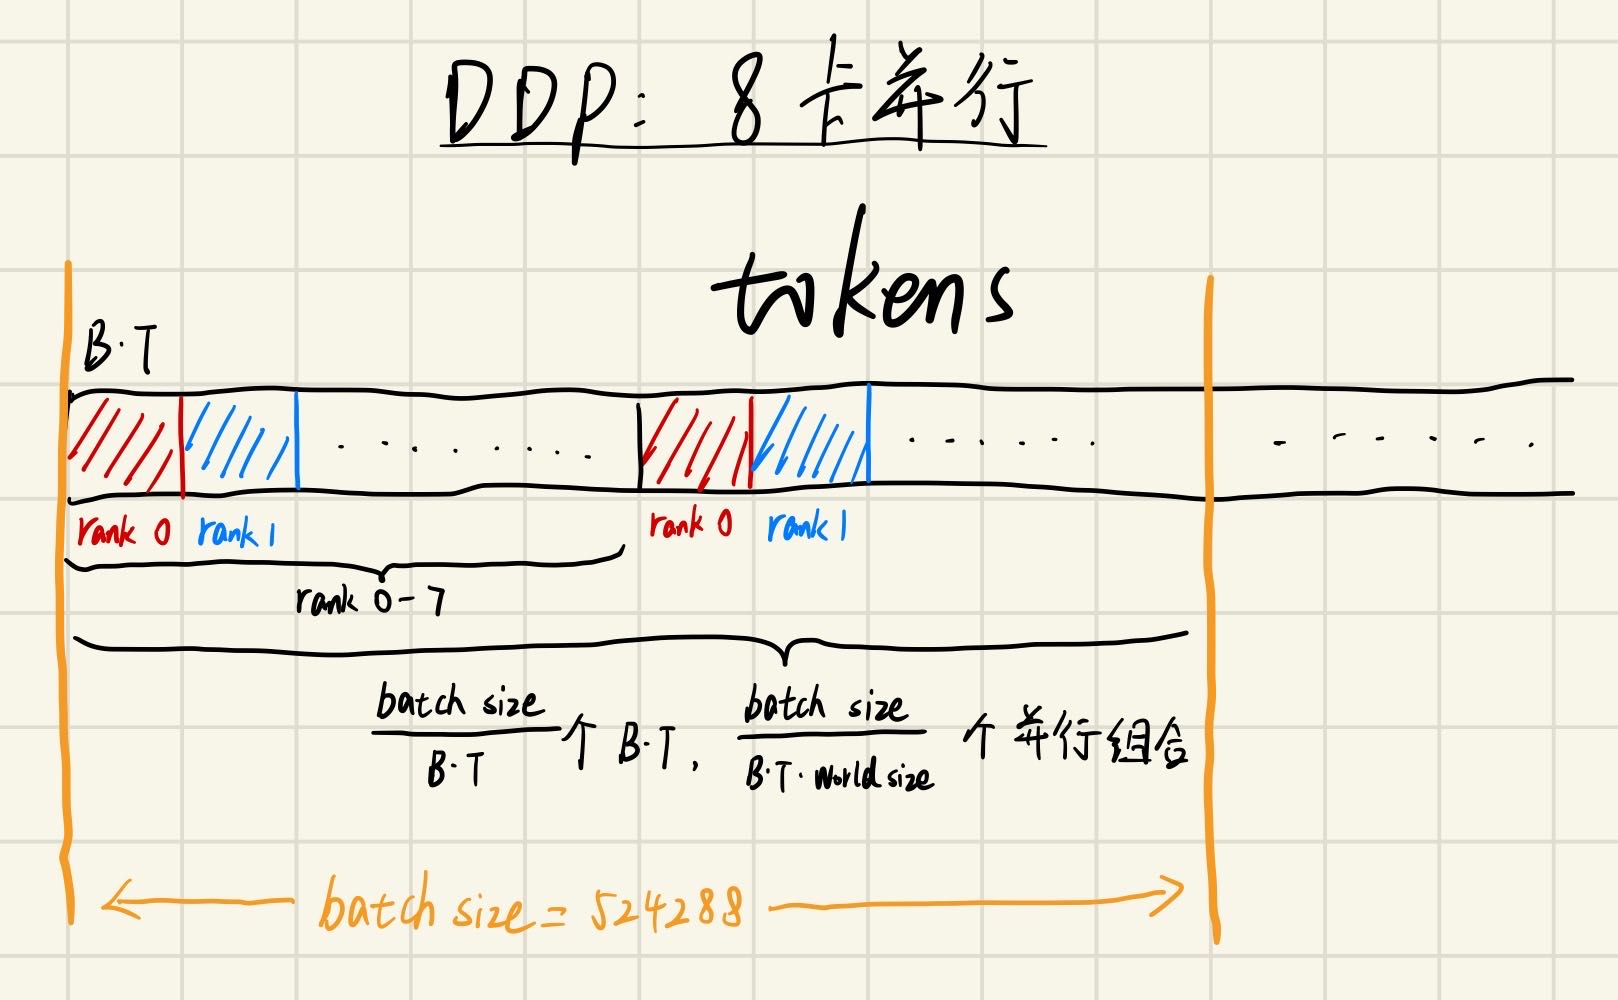 DDP: 8卡并行
tokens
B·T
rank 0 rank 1 rank 0 rank 1
rank 0-7
batch size / B·T 个 B·T, batch size / B·T·world size 个并行组合
batch size = 524288